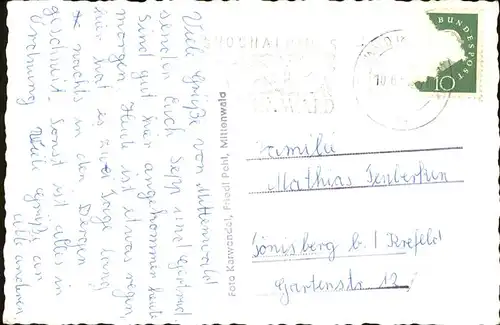 Viele Grüße von Mittenwald
senden Euch Sepp und Gertrud
Sind gut hier angekommen heute
morgen. Heute ist etwas regen,
hier hat es zwei Tage lang
nachts in den Bergen
geschneit. Sonst ist alles in
Ordnung. Viele Grüße an
alle anderen.
Foto Karwendel, Friedl Pohl, Mittenwald
DEUTSCHE
BUNDESPOST
10
Familie
Mathias
Tönisberg b./ Krefeld
Gartenstr. 12